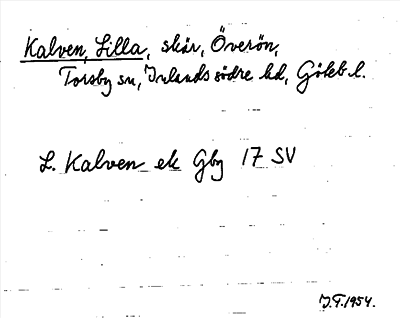 Kalven, Lilla, skär, Överön,
Torsby sn, Inlands södre hd, Göteb. l.
L. Kalven ek Gby 17 SV
J.F. 1954.